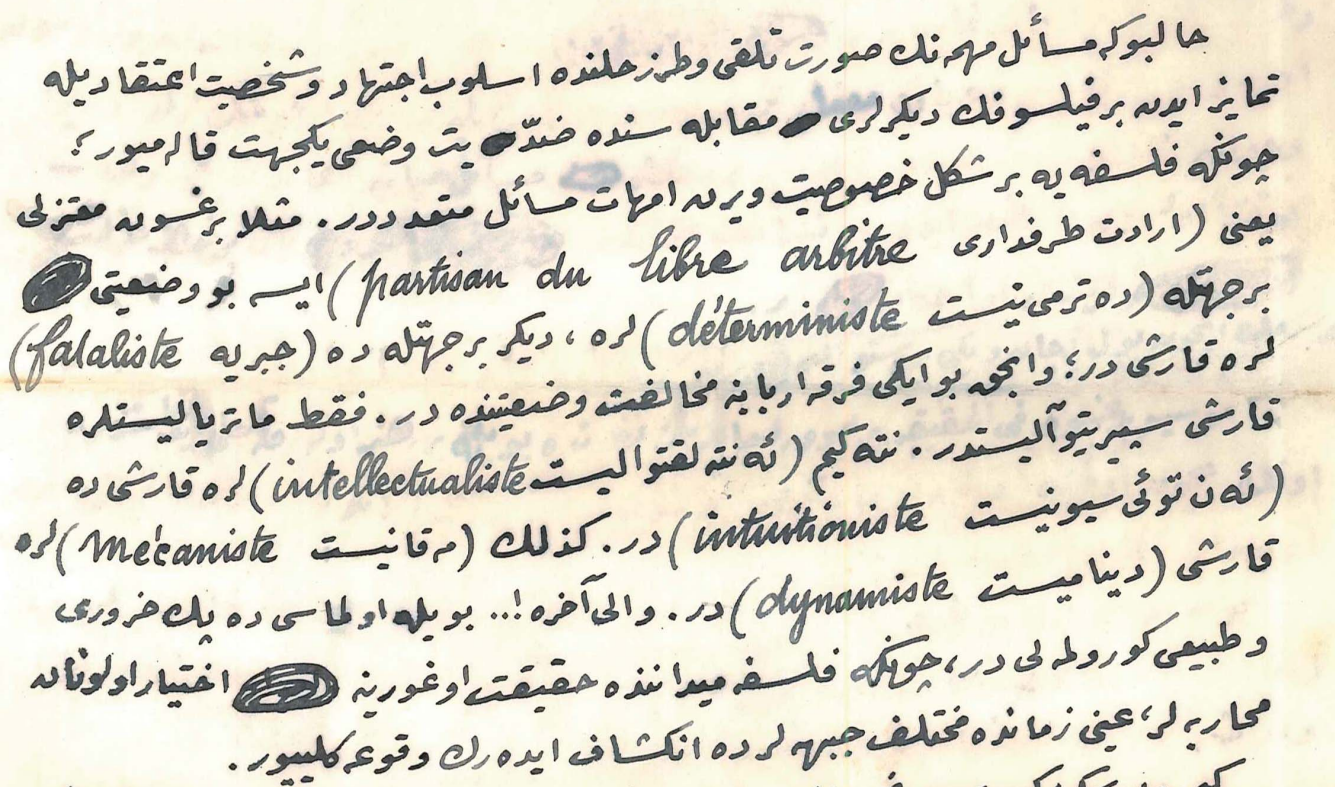 حالبوكه مسائل مهمه نك صورت تلقى وطرز حلنده اسلوب اجتهاد وشخصيت اعتقاديله
تمايز ايدن بر فيلسوفك ديكرلرى مقابله سنده ضدّيت وضعى يكجهت قالميور؛
چونكه فلسفه يه بر شكل خصوصيت ويرن امهات مسائل متعدددر. مثلا برغسون معتزلى
يعنى (ارادت طرفدارى partisan du libre arbitre) ايسه بو وضعيتى
بر جهتله (ده ترمى نيست déterministe) لره، ديكر بر جهتله ده (جبريه fataliste)
لره قارشى در؛ وانجق بو ايكى فرقه اربابنه مخالفت وضعيتنده در. فقط ماترياليستلره
قارشى سپيريتوآليستدر. نته كيم (ئه نته لقتواليست intellectualiste) لره قارشى ده
(ئه ن توئى سيونيست intuitioniste) در. كذلك (مه قانيست mécaniste) لره
قارشى (ديناميست dynamiste) در. والى آخره!.. بويله اولماسى ده پك ضرورى
وطبيعى كورولمه لى در، چونكه فلسفه ميداننده حقيقت اوغورينه اختيار اولونان
محاربه لر؛ عينى زمانده مختلف جبهه لرده انكشاف ايده رك وقوعه كلييور.